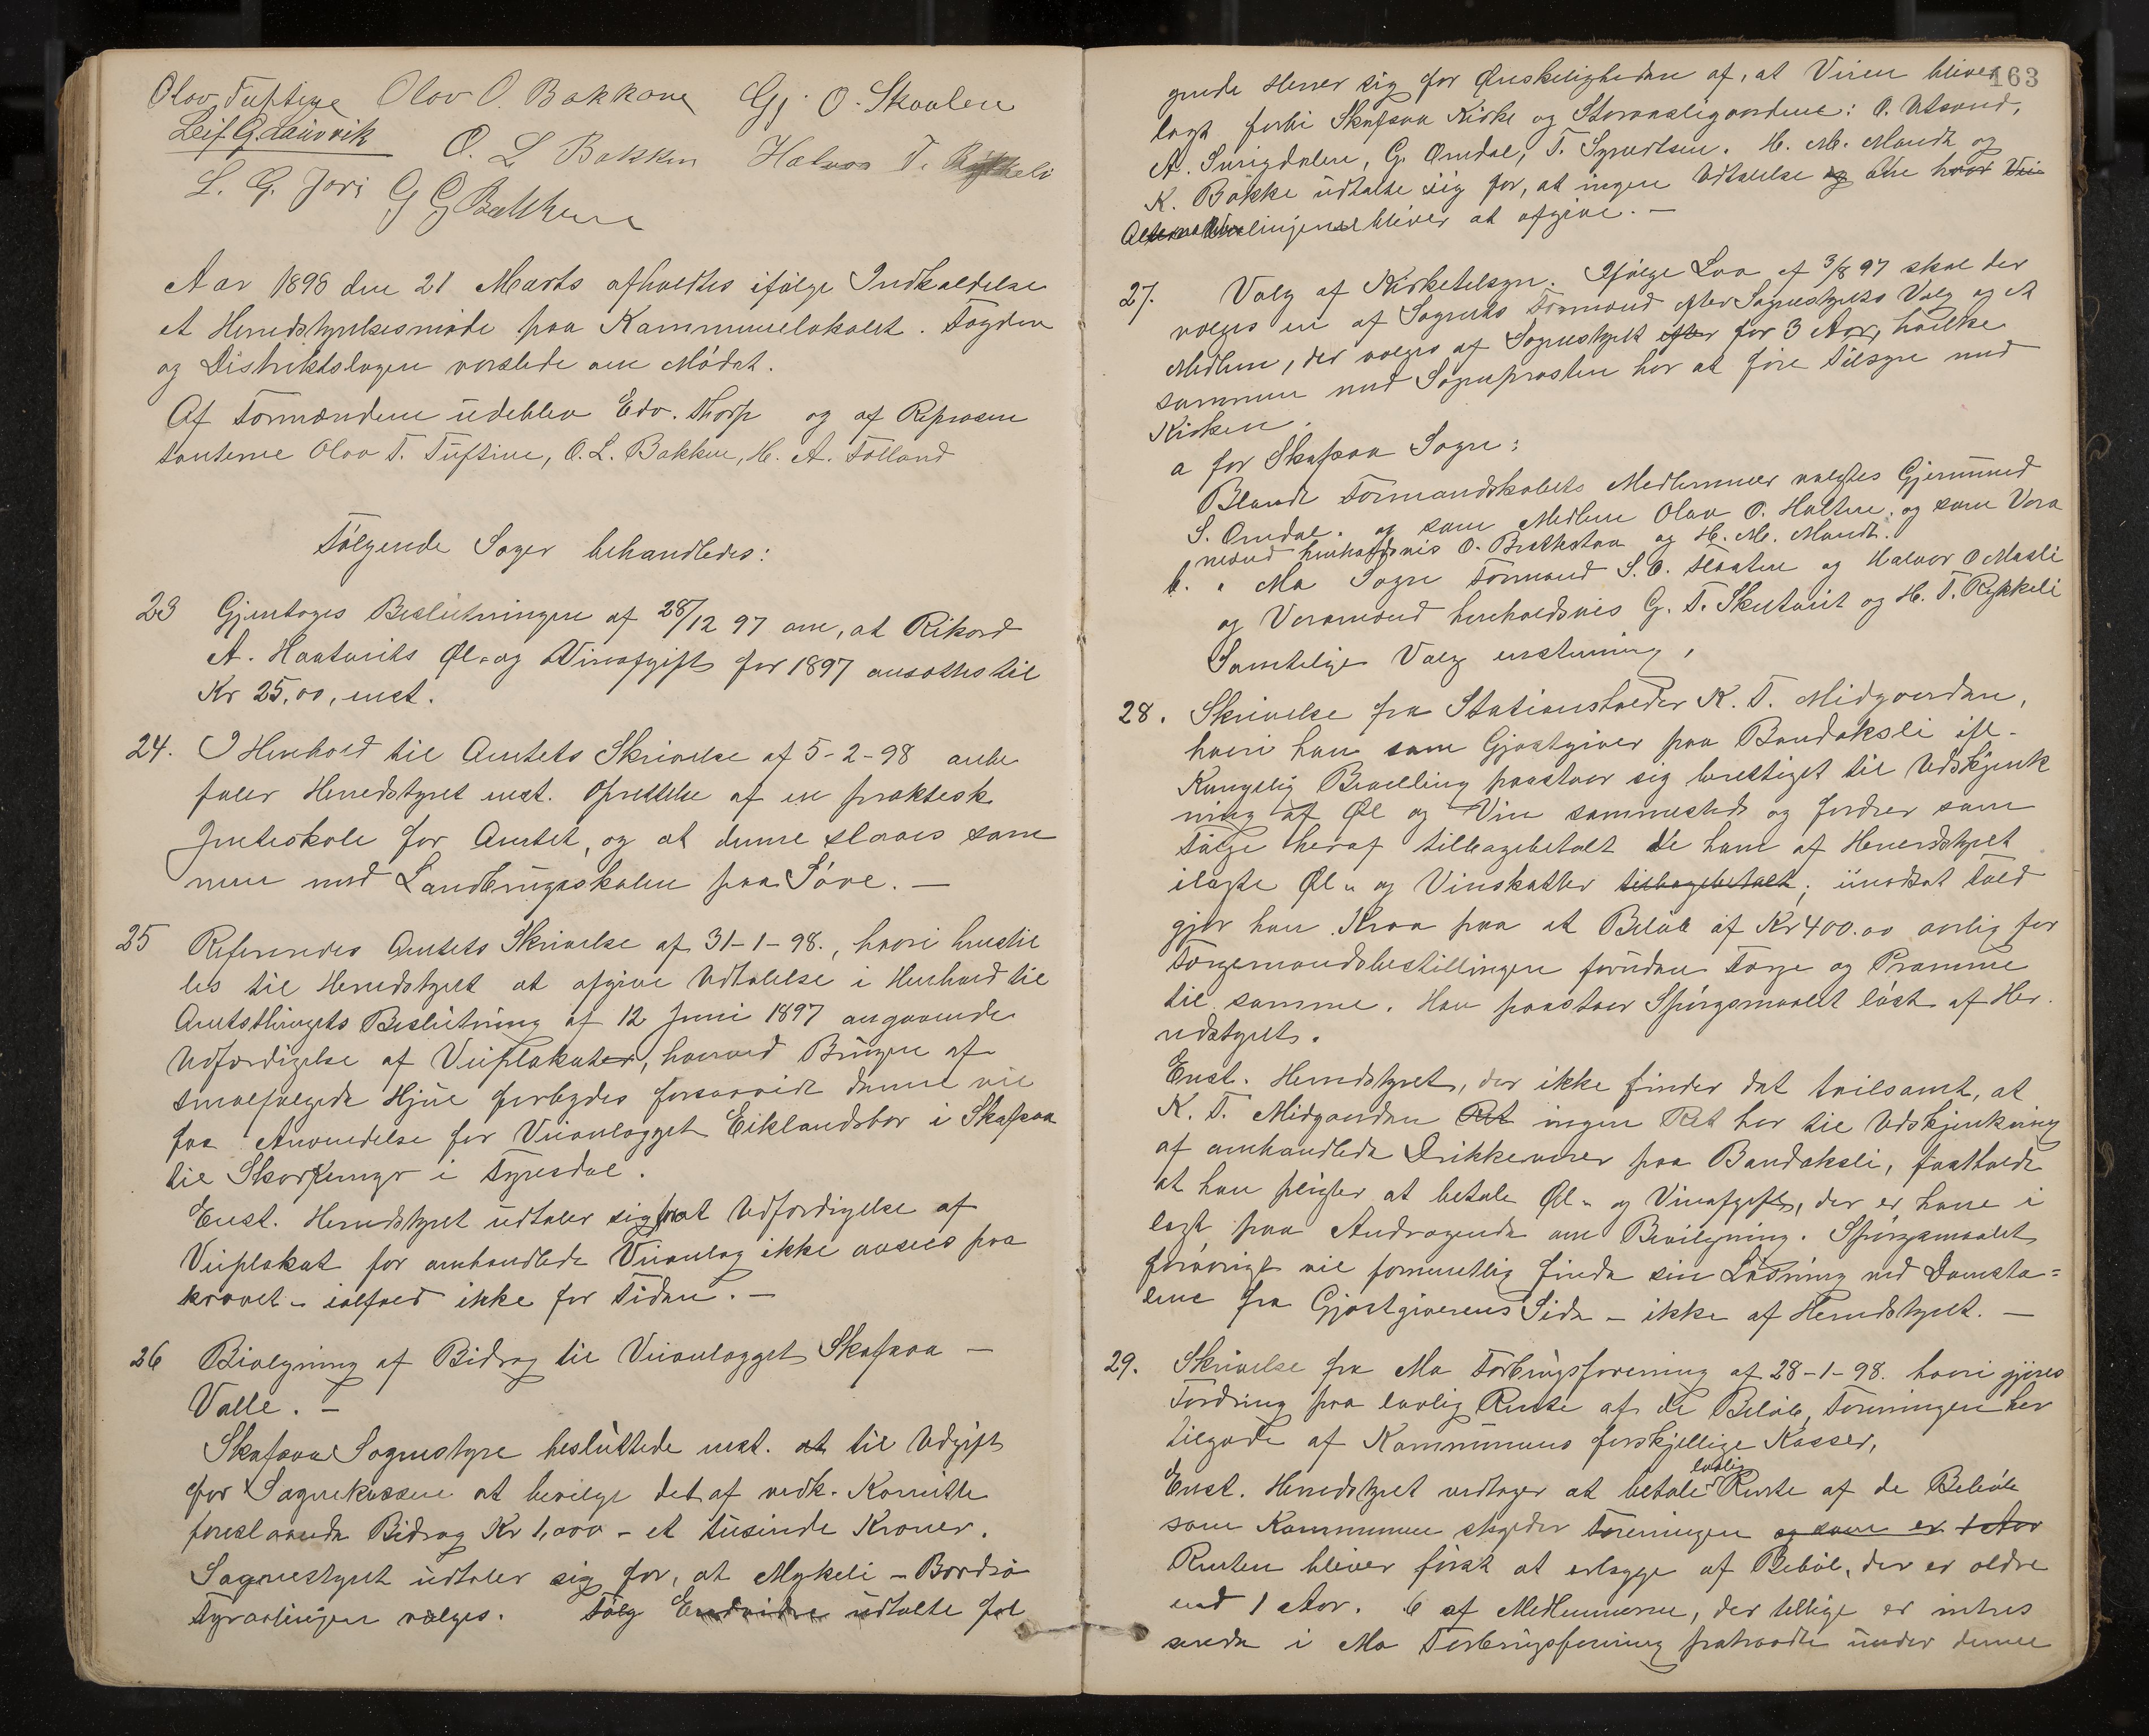 Olav Tuftine Olav O. Bakkane Gj. O. Skaalen
Leif G. Lauvvik O. L. Bakken Halvor T. Rykkeli
L. G. Jori G G Bakkene
Aar 1898 den 21 Marts afholdtes ifølge Indkaldelse
et Herredstyrelsesmøde paa Kommunelokalet. Fogden
og Distriktslægen varslede om Mødet.
Af Formændene udeblev Edv. Thorp og af Repræsen
tanterne Olav T. Tuftine, O. L. Bakken, H. A. Folland
Følgende Sager behandledes:
23 Gjentoges Beslutningen af 28/12 97 om, at Rikard
A. Haatveits Øl- og Vinafgift for 1897 ansættes til
Kr 25,00, enst.
24. I Henhold til Amtets Skrivelse af 5-2-98 anbe
faler Herredstyret enst. Oprettelse af en praktisk
Jenteskole for Amtet, og at denne slaaes sam
men med Landbrugsskolen paa Søve. —
25 Refereredes Amtets Skrivelse af 31-1-98., hvori henstil
les til Herredstyret at afgive Udtalelse i Henhold til
Amtsthingets Beslutning af 12 Juni 1897 angaaende
Udfærdigelse af Veiplakater, hvorved Brugen af
smalfælgede Hjul forbydes forsaavidt denne vil
faa Anvendelse for Veianlægget Eiklandsbør i Skafsaa
til Skorfemyr i Fyresdal.
Enst. Herredstyret udtaler sig for at Udfærdigelse af
Veiplakat for omhandlede Veianlæg ikke ansees paa
krævet - ialfald ikke for Tiden. —
26 Bevilgning af Bidrag til Veianlægget Skafsaa —
Valle. —
Skafsaa Sognestyre besluttede enst. at til Udgift
for Sognekassen at bevilge det af vedk. Komitte
foreslaaede Bidrag Kr 1,000 - et tusinde Kroner.
Sognestyret udtaler sig for, at Mykeli - Bordsø
dyraalinjen vælges. Følg Endvidre udtalte føl
163
gende Herrer sig for Ønskeligheden af, at Veien bliver
lagt forbi Skafsaa Kirke og Storvaaligaardene: O. Utsund,
A. Smigdalen, G. Omdal, T. Sgurdsen. H. M. Mandt og
K. Bakke udtalte sig for, at ingen Udtalelse og om hvor Vei
Alternativlinjene bliver at afgive. —
27. Valg af Kirketilsyn. Ifølge Lov af 3/8 97 skal der
vælges en af Sognets Formænd efter Sognestyrets Valg og et
Medlem, der vælges af Sognestyret efter for 3 Aar, hvilke
sammen med Sognepræsten har at føre Tilsyn med
Kirken.
a for Skafsaa Sogn:
Blandt Formandskabets Medlemmer valgtes Gjermund
S. Omdal. og som Medlem Olav O. Haltne. og som Vara
mænd henholdsvis O. Brækstaa og H. M. Mandt.
b. " Mo Sogn Formand S. O. Flaaten og Halvor O Maali
og Varamænd henholdsvis G. T. Skutveit og H. T. Rykkeli
Samtlige Valg enstemmig.
28. Skrivelse fra Stationsholder K. T. Midgaarden,
hvori han som Gjæstgiver paa Bandaksli ifl.
Kongelig Bevilling paastaar sig berettiget til Udskjænk
ning af Øl og Vin sammesteds og fordrer som
Følge heraf tilbagebetalt de ham af Herredstyret
ilagte Øl- og Vinskatter tilbagebetalt; imodsat Fald
gjør han Krav paa et Beløb af Kr 400.00 aarlig for
Færgemandsbestillingen foruden Færge og Pramme
til samme. Han paastaar Spørgsmaalet løst af Her
redstyret.
Enst. Herredstyret, der ikke finder det tvilsomt, at
K. T. Midgaarden Ret ingen Ret har til Udskjænkning
af omhandlede Drikkevarer paa Bandaksli, fastholder
at han pligter at betale Øl- og Vinafgift, der er ham i
lagt paa Andragende om Bevilgning. Spørgsmaalet
forøvrigt vil formentlig finde sin Løsning ved Domsto=
lene fra Gjæstgiverens Side - ikke af Herredstyret. —
29. Skrivelse fra Mo Forbrugsforening af 28-1-98. hvori gjøres
Fordring paa lovlig Rente af de Beløb, Foreningen har
tilgode af Kommunens forskjellige Kasser,
Enst. Herredstyret vedtager at betale lovlig Rente af de Beløb
som Kommunen skylder Foreningen og som er 1 Aar
Renten bliver først at erlægge af Beløb, der er ældre
end 1 Aar. 6 af Medlemmerne, der tillige er intres
serede i Mo Forbrugsforening fratraadte under denne